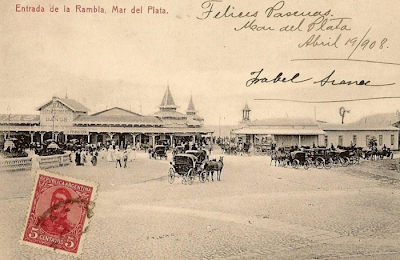 Entrada de la Rambla, Mar del Plata.
Felices Pascuas.
Mar del Plata
Abril 19/908.
Isabel
REPUBLICA ARGENTINA
5 CENTAVOS 5